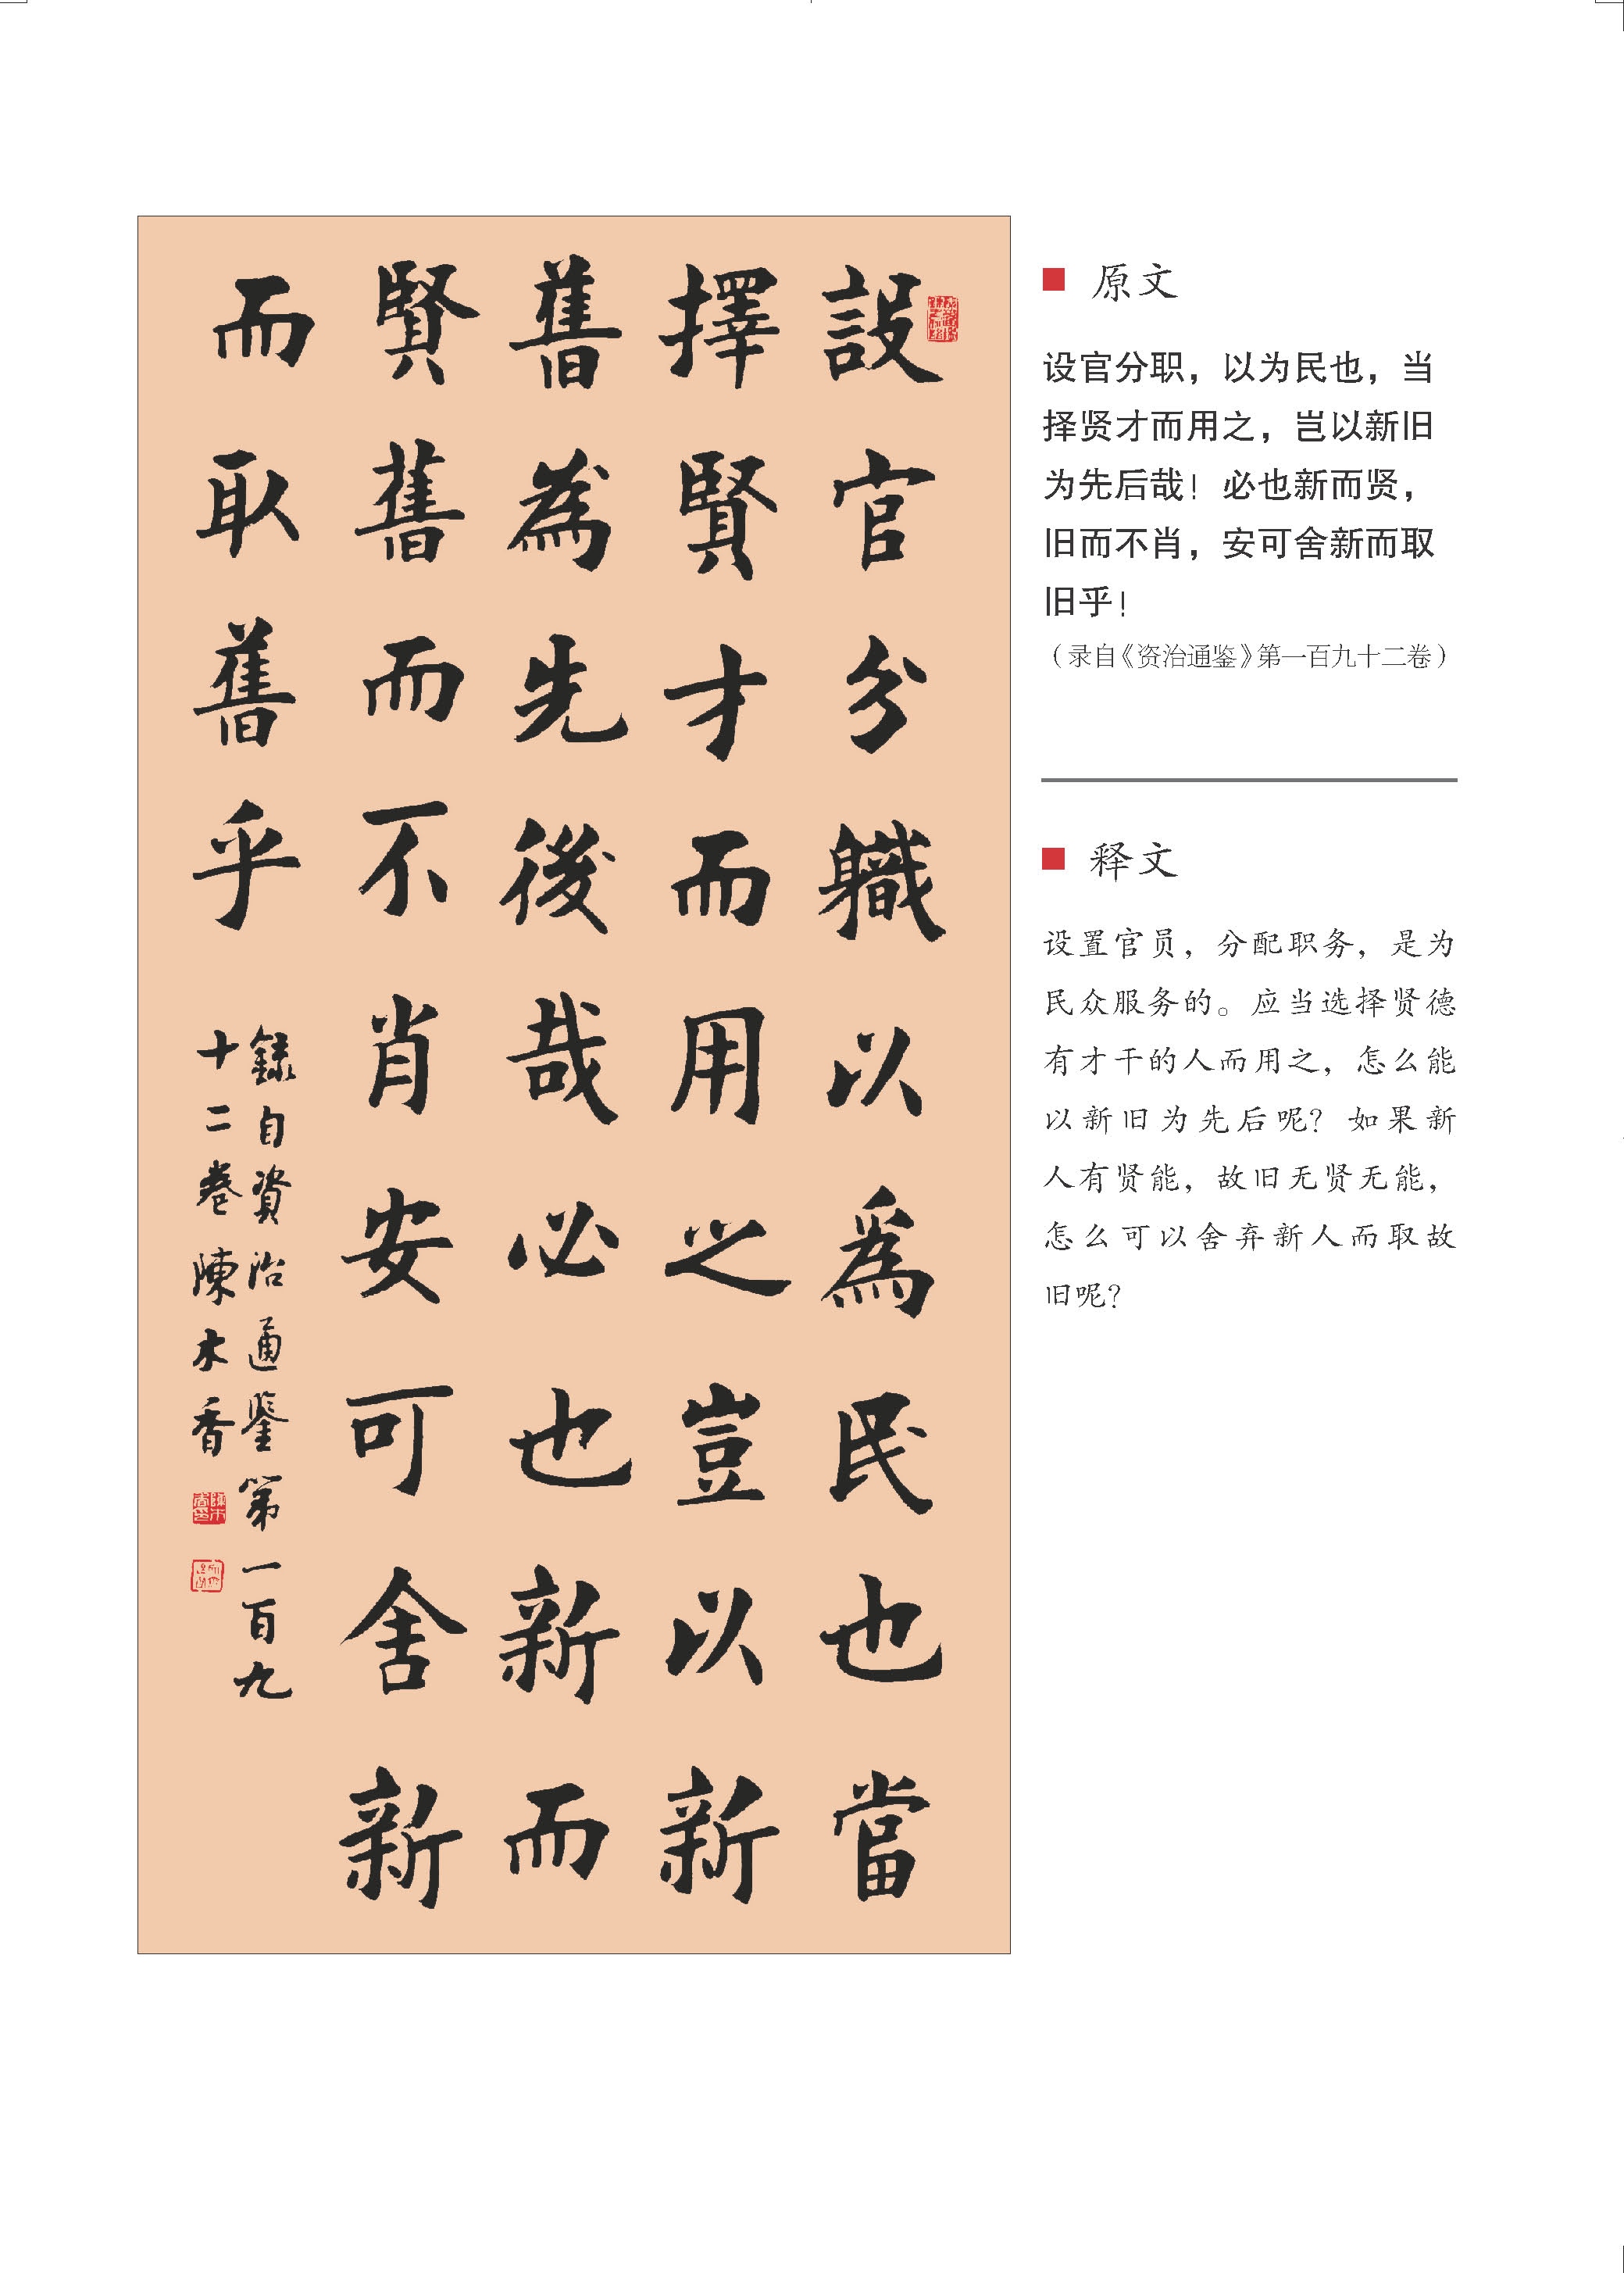 設官分職以為民也當
擇賢才而用之豈以新
舊為先後哉必也新而
賢舊而不肖安可舍新
而取舊乎
錄自資治通鑒第一百九
十二卷陳木香
原文
设官分职，以为民也，当
择贤才而用之，岂以新旧
为先后哉！必也新而贤，
旧而不肖，安可舍新而取
旧乎！
（录自《资治通鉴》第一百九十二卷）
释文
设置官员，分配职务，是为
民众服务的。应当选择贤德
有才干的人而用之，怎么能
以新旧为先后呢？如果新
人有贤能，故旧无贤无能，
怎么可以舍弃新人而取故
旧呢？